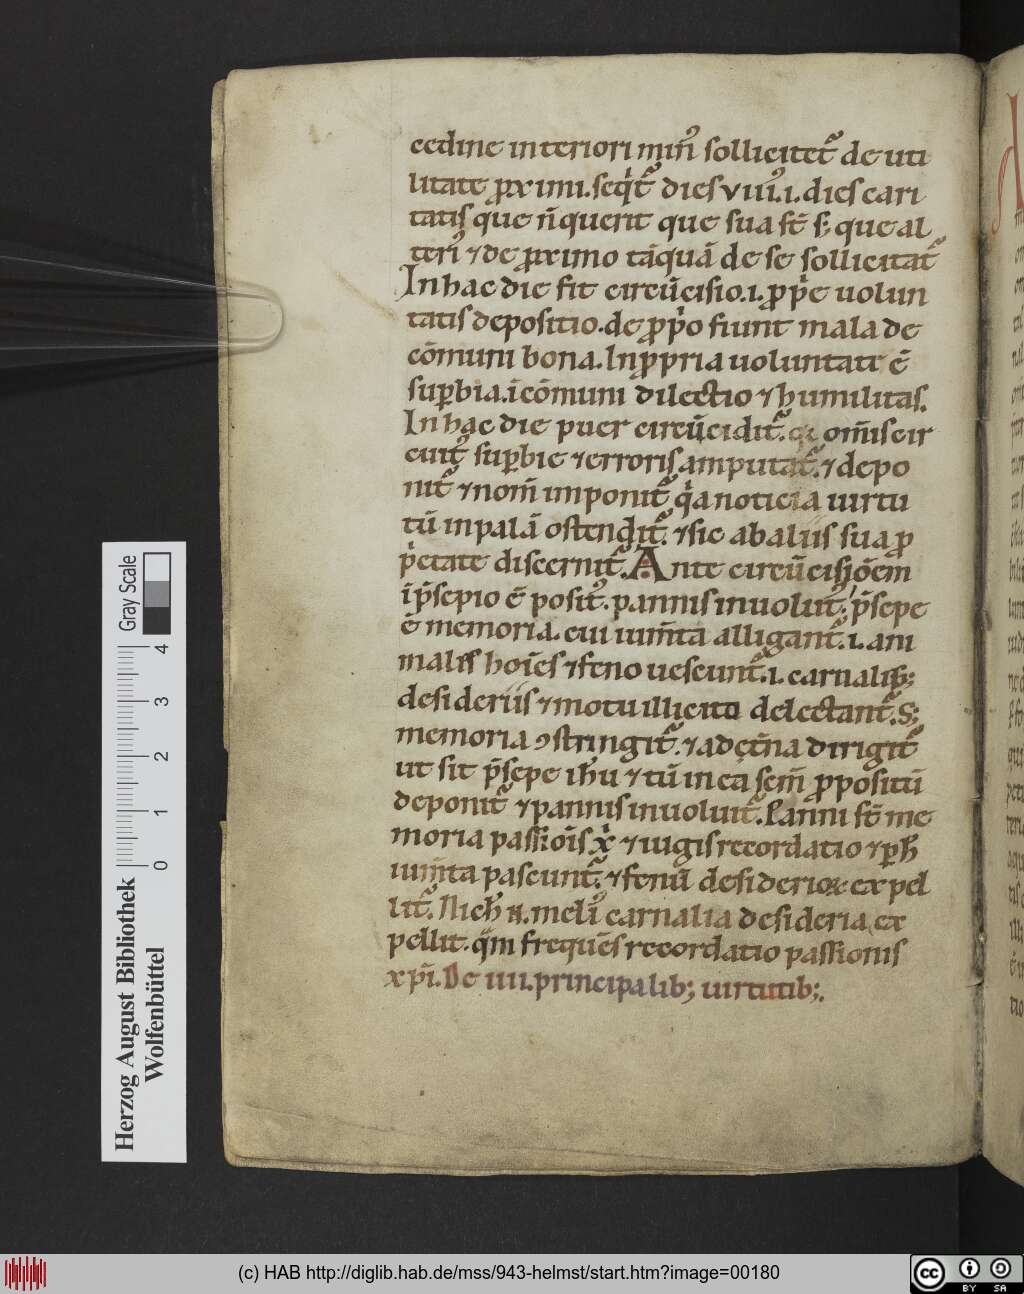 cedine interiori min᷒ sollicitet᷑ de uti
litate ꝓximi. seqͥt᷑ dies viii᷒.i. dies cari
tatis que n̄ querit que sua st̄ sꝫ que al
teri᷒ ⁊ de ꝓximo tāquā de se sollicitat᷑
In hac die fit circūcisio.i. ꝓpͥe uolun
tatis depositio. de ꝓpͥo fiunt mala de
cōmuni bona. In ꝓpria uoluntate ē
suꝑbia. ī cōmuni dilectio ⁊ humilitas.
In hac die puer circūcidit᷑. om̄is cir
cuit᷒ suꝑbie ⁊ erroris amputat᷑. ⁊ depo
nit᷑ ⁊ nom̄ imponit᷑ qͥa noticia uirtu
tū in palā ostendit᷑. ⁊ sic ab aliis sua ꝓ
pͥetate discernit᷑. Ante circūcisiōem
ī p̄sepio ē posit᷒. pannis inuolut᷒. p̄sepe
ē memoria. cui ium̄ta alligant᷑.i. ani
males hoīes ⁊ feno uescunt᷑.i. carnalibꝫ
desideriis ⁊ motu illicito delectant᷑. Sꝫ
memoria ꝯstringit᷑. ⁊ ad ęt̄na dirigit᷑
ut sit p̄sepe ih̄u ⁊ tū in ea sem̄ ꝓpositū
deponit᷑ ⁊ pannis inuoluit᷑. Panni st̄ me
moria passiōis xͥ ⁊ iugis recordatio ⁊ ꝑ h̄
ium̄ta pascunt᷑. ⁊ fenū desiderioꝝ expel
lit᷑. Nich̄ .n. meli᷒ carnalia desideria ex
pellit. qͣm frequēs recordatio passionis
xp̄i. De iiii. principalibꝫ uirtutibꝫ.
Herzog August Bibliothek
Wolfenbüttel
0 1 2 3 4
Gray Scale
(c) HAB http://diglib.hab.de/mss/943-helmst/start.htm?image=00180
cc BY SA